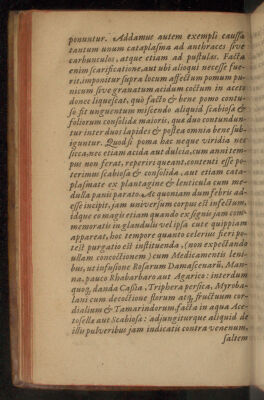 ponuntur. Addamus autem exempli caussa
tantum unum cataplasma ad anthraces sive
carbunculos, atque etiam ad pustulas. Facta
enim scarificatione, aut ubi alioqui necesse fue-
rit, imponitur supra locum affectum pomum pu-
nicum sive granatum acidum coctum in aceto
donec liquescat, quo facto & bene pomo contu-
so fit unguentum miscendo aliquid scabiosæ &
foliorum consolidæ maioris, quæ duo contundun-
tur inter duos lapides & postea omnia bene sub-
iguntur. Quod si poma hæc neque viridia nec
sicca, nec etiam acida aut dulcia, cum anni tem-
pus non ferat, reperiri queant, contenti esse po-
terimus scabiosa & consolida, aut etiam cata-
plasmate ex plantagine & lenticula cum me-
dulla panis parato. At quoniam dum febris ad-
esse incipit, jam universum corpus est infectum,
idque eo magis etiam quando ex signis jam com-
memoratis in glandulis vel ipsa cute quippiam
appareat, hoc tempore quanto celerius fieri po-
test purgatio est instituenda, (non expectando
ullam concoctionem) cum Medicamentis leni-
bus, ut infusione Rosarum Damascenarũ, Man-
na, pauco Rhabarbaro aut Agarico: interdum
quoq; danda Casia, Tryphera persica, Myroba-
lani cum decoctione florum atq; fructuum cor-
dialium & Tamarindorum, facta in aqua Ace-
tosellæ aut Scabiosæ: adjungiturque aliquid de
illis pulveribus jam indicatis contra venenum,
saltem